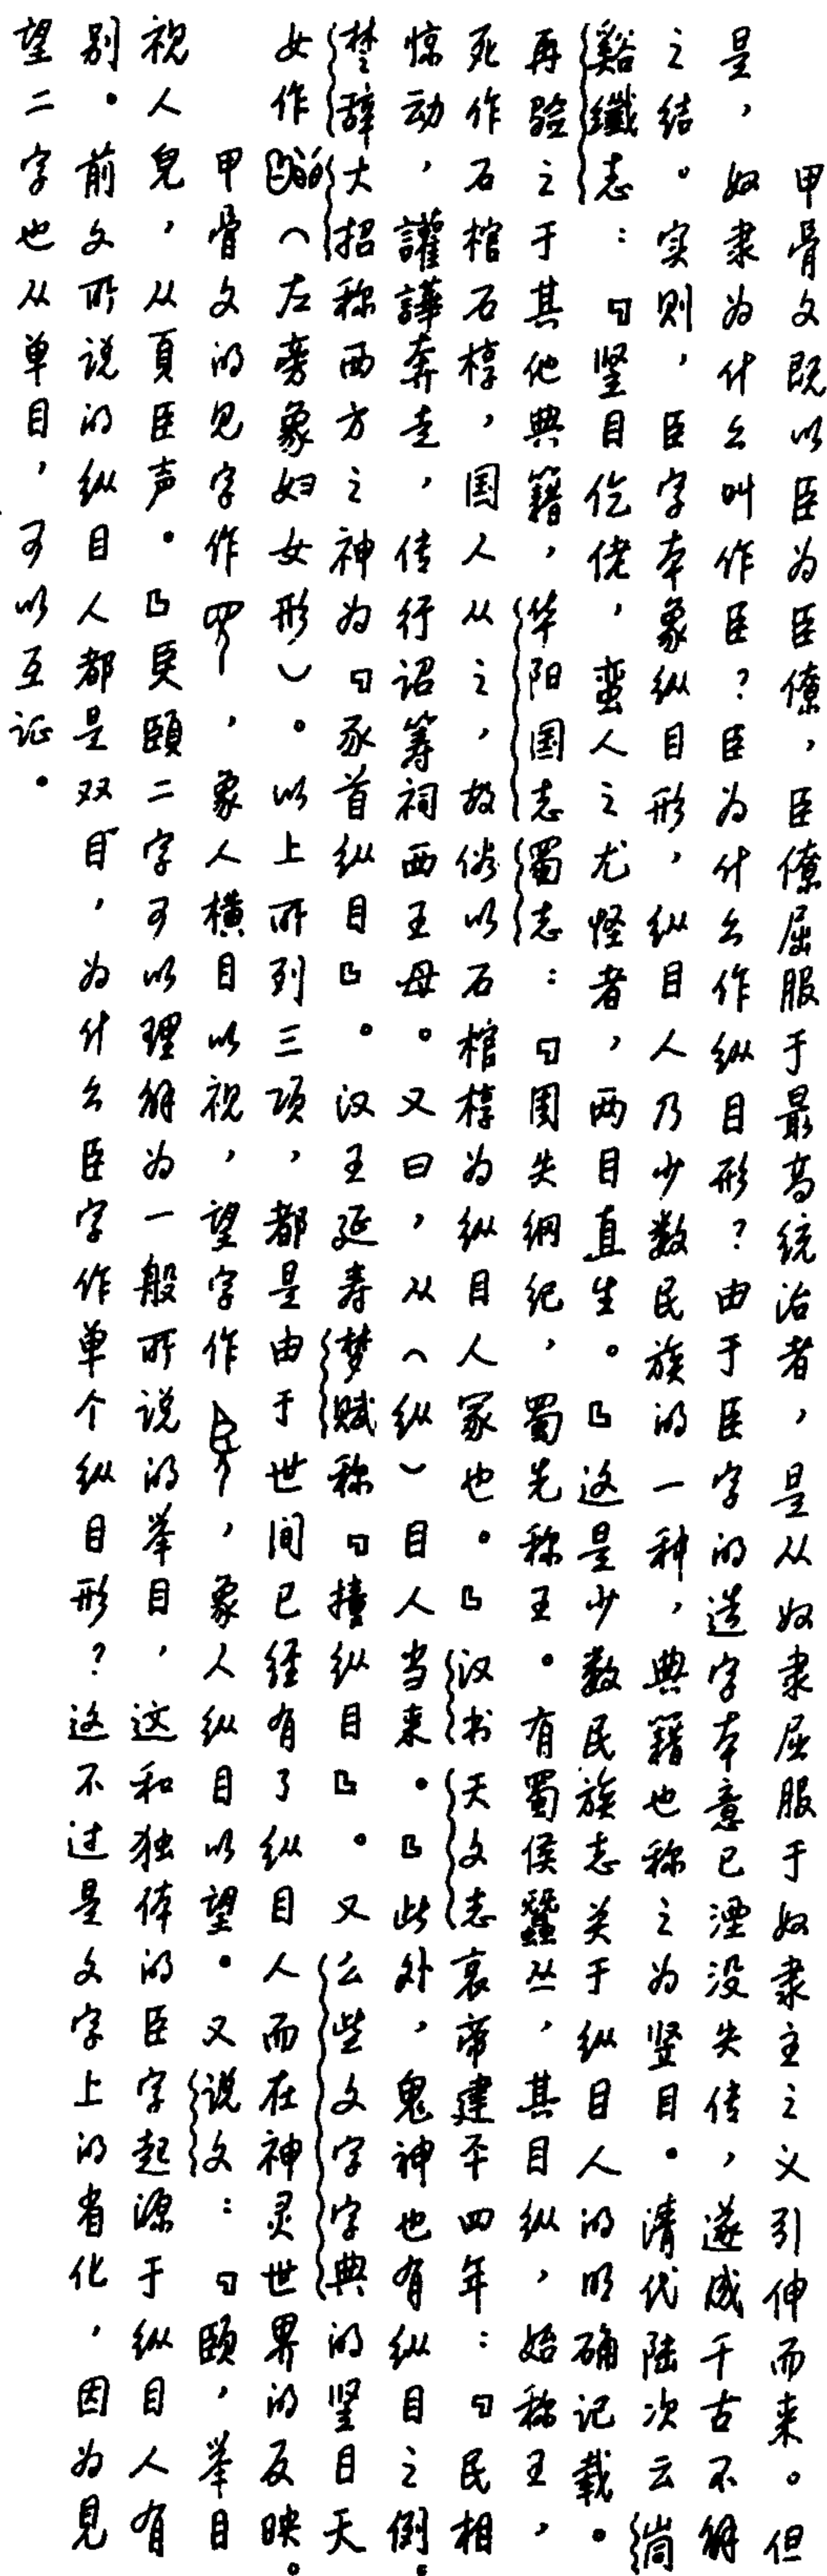 甲骨文既以臣为臣僚，臣僚屈服于最高统治者，是从奴隶屈服于奴隶主之义引伸而来。但
是，奴隶为什么叫作臣？臣为什么作纵目形？由于臣字的造字本意已湮没失传，遂成千古不解
之结。实则，臣字本象纵目形，纵目人乃少数民族的一种，典籍也称之为竖目。清代陆次云峝
谿纖志：﹃竖目仡佬，蛮人之尤怪者，两目直生。﹄这是少数民族志关于纵目人的明确记载。
再验之于其他典籍，华阳国志蜀志：﹃周失纲纪，蜀先称王。有蜀侯蠶丛，其目纵，始称王，
死作石棺石椁，国人从之，故俗以石棺椁为纵目人冢也。﹄汉书天文志哀帝建平四年：﹃民相
惊动，讙譁奔走，传行诏筹祠西王母。又曰，从（纵）目人当来。﹄此外，鬼神也有纵目之例。
楚辞大招称西方之神为﹃豕首纵目﹄。汉王延寿梦赋称﹃撞纵目﹄。又么些文字字典的竖目天
女作（左旁象妇女形）。以上所列三项，都是由于世间已经有了纵目人而在神灵世界的反映。
甲骨文的见字作，象人横目以视，望字作，象人纵目以望。又说文：﹃頤，举目
视人皃，从頁臣声。﹄臾頤二字可以理解为一般所说的举目，这和独体的臣字起源于纵目人有
别。前文所说的纵目人都是双目，为什么臣字作单个纵目形？这不过是文字上的省化，因为见
望二字也从单目，可以互证。